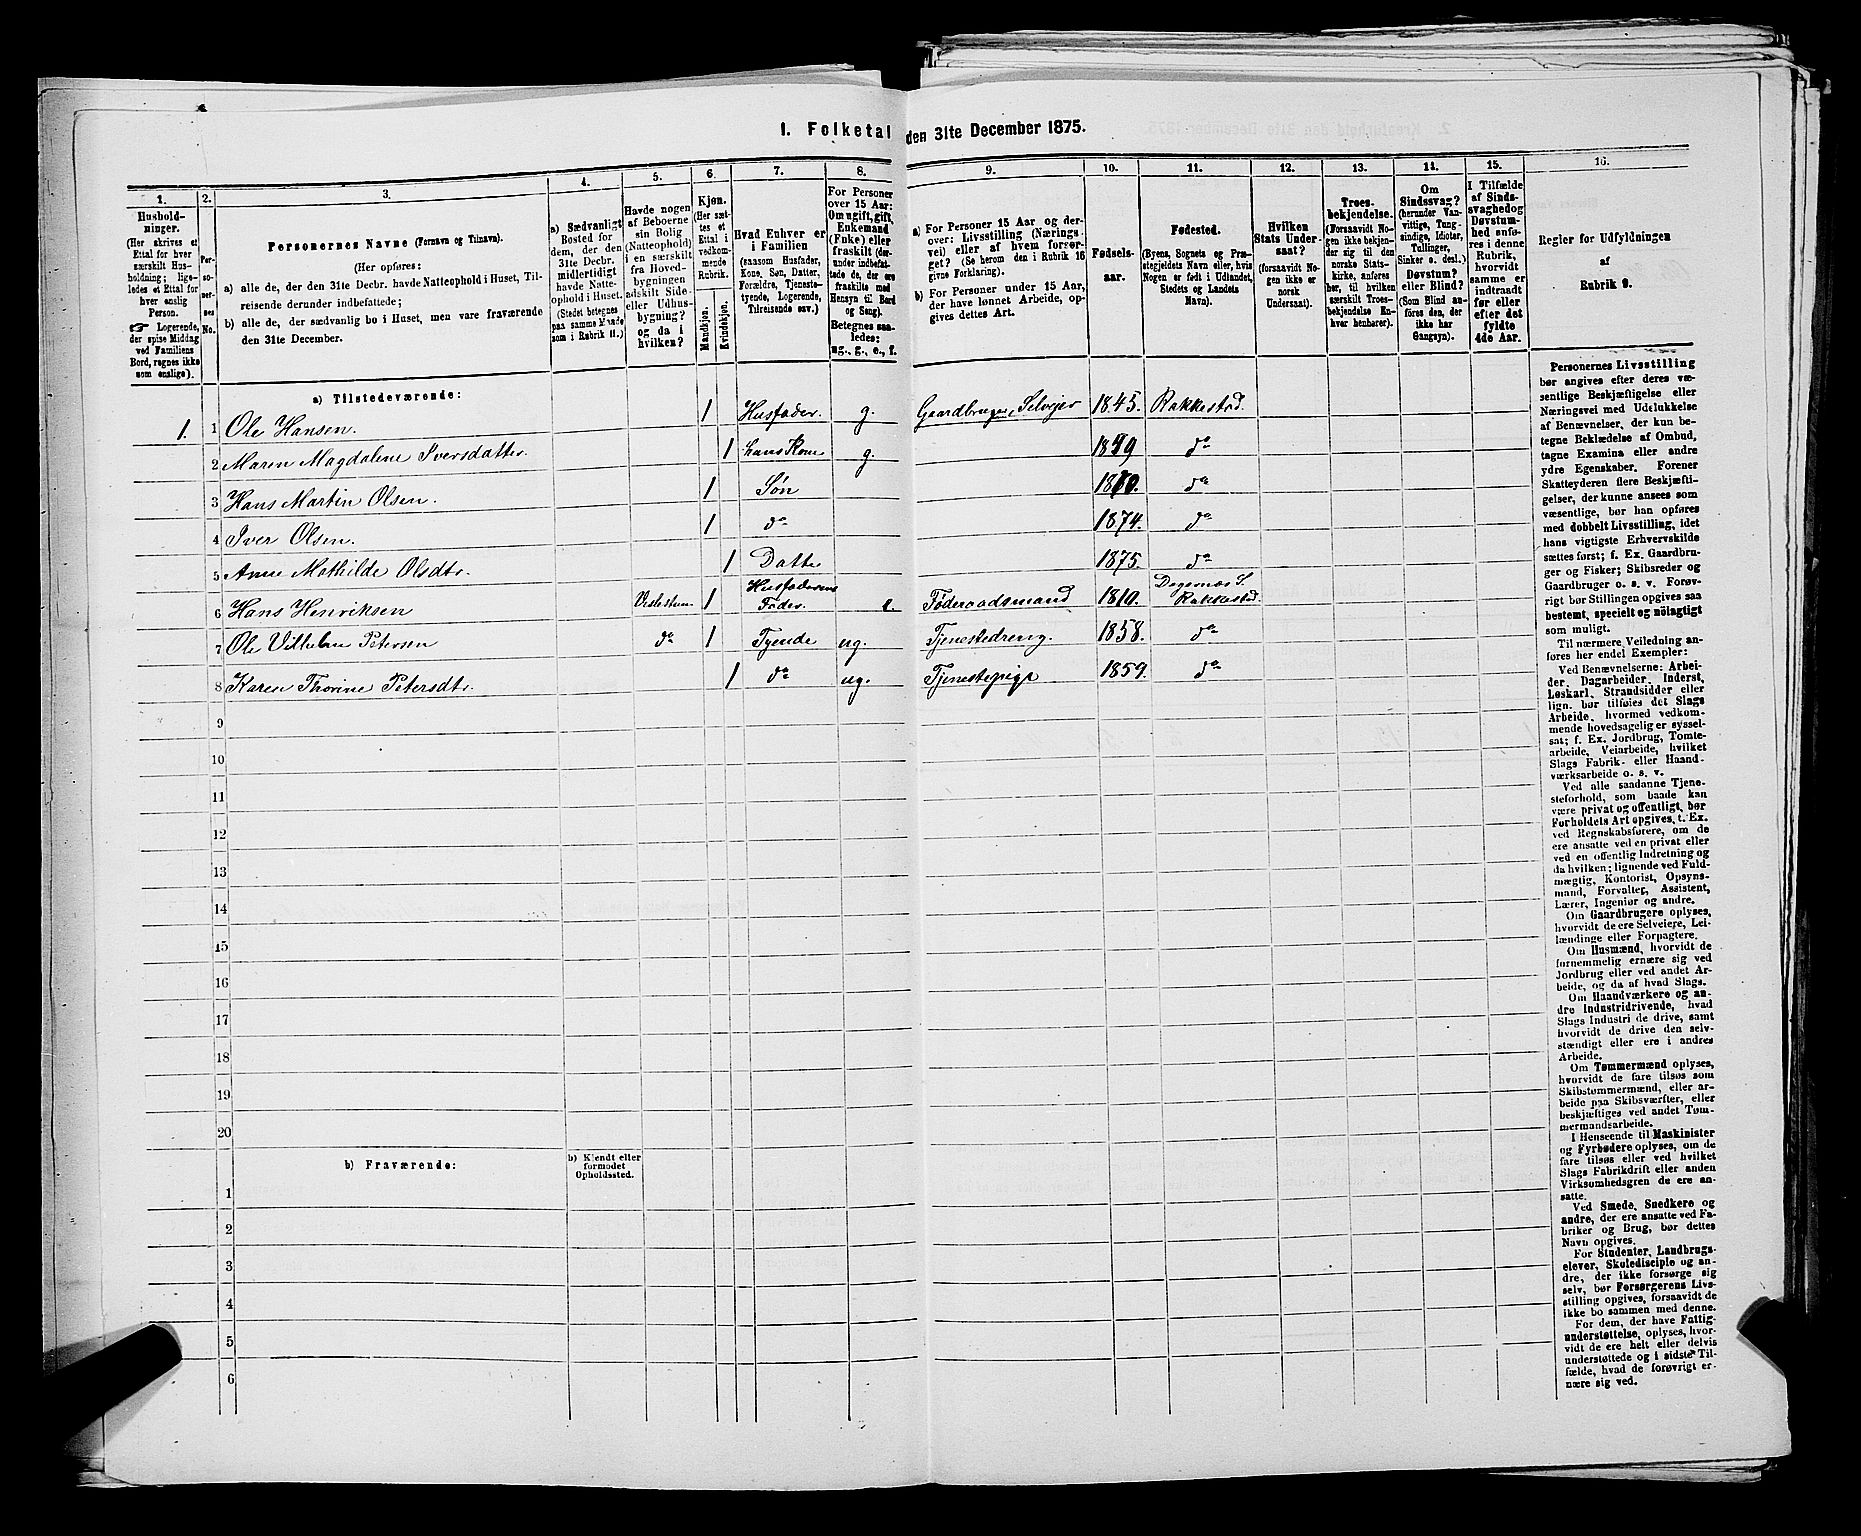 1. Folketal den 31te December 1875.
1. 2. 3. 4. 5. 6. 7. 8. 9. 10. 11. 12. 13. 14. 15. 16.
Husholdninger.
(Her skrives et Ettal for hver særskilt Husholdning; ligeledes et Ettal for hver enslig Person.
☞ Logerende, der spise Middag ved Familiens Bord, regnes ikke som enslige).
Personernes No.
Personernes Navne (Fornavn og Tilnavn).
(Her opføres:
a) alle de, der den 31te Decbr. havde Natteophold i Huset, Tilreisende derunder indbefattede;
b) alle de, der sædvanlig bo i Huset, men vare fraværende den 31te December.
a) Sædvanligt Bosted for dem, der den 31te Decbr. midlertidigt havde Natteophold i Huset. (Stedet betegnes paa samme Maade som i Rubrik 11.)
Havde nogen af Beboerne sin Bolig (Natteophold) i en særskilt fra Hovedbygningen adskilt Side- eller Udhusbygning? og da i hvilken?
Kjøn.
(Her sættes et Ettal i vedkommende Rubrik.
Mandkjøn.
Kvindekjøn.
Hvad Enhver er i Familien
(saasom Husfader, Kone, Søn, Datter, Forældre, Tjenestetyende, Logerende, Tilreisende osv.)
For Personer over 15 Aar: Om ugift, gift, Enkemand (Enke) eller fraskilt (derunder indbefattede de, der ere fraskilte med Hensyn til Bord og Seng).
Betegnes saaledes: ug., g., e., f.
a) For Personer 15 Aar og derover: Livsstilling (Næringsvei) eller af hvem forsørget? (Se herom den i Rubrik 16 givne Forklaring).
b) For Personer under 15 Aar, der have lønnet Arbeide, opgives dettes Art.
Fødselsaar.
Fødested.
(Byens, Sognets og Præstegjeldets Navn eller, hvis Nogen er født i Udlandet, Stedets og Landets Navn).
Hvilken Stats Undersaat?
(forsaavidt Nogen ikke er norsk Undersaat).
Troesbekjendelse.
(Forsaavidt Nogen ikke bekjender sig til den norske Statskirke, anføres her, til hvilken særskilt Troesbekjendelse Enhver henhører).
Om Sindssvag? (herunder Vanvittige, Tungsindige, Idioter, Tullinger, Sinker o. desl.)
Døvstum? eller Blind?
(Som Blind anføres den, der ikke har Gangsyn).
I Tilfælde af Sindssvaghed og Døvstumhed anføres i denne Rubrik, hvorvidt samme er indtraadt før eller efter det fyldte 4de Aar.
Regler for Udfyldningen af Rubrik 9.
a) Tilstedeværende:
1. 1 Ole Hansen. 1 Husfader. g. Gaardbruger, Selvejer 1845. Rakkestad.
2 Maren Magdalene Iversdatter. 1 hans Kone g. 1849 do
3 Hans Martin Olsen. 1 Søn 1870. do
4 Iver Olsen. 1 do 1874. do
5 Anne Mathilde Olsdtr. 1 Datter 1875. do
6 Hans Henriksen 1 Husfaderens Fader. e. Føderaadsmand 1810. Degernæs S. Rakkestad.
7 Ole Vilhelm Petersen do 1 Tyende ug. Tjenestedreng. 1858. do
8 Karen Thorine Petersdtr. 1 do ug. Tjenestepige 1859. do
9
10
11
12
13
14
15
16
17
18
19
20
b) Fraværende:
b) Kjendt eller formodet Opholdssted.
1
2
3
4
5
6
Personernes Livsstilling
bør angives efter deres væ-
sentlige Beskjæftigelse eller
Næringsvei med Udelukkelse
af Benævnelser, der kun be-
tegne Beklædelse af Ombud,
tagne Examina eller andre
ydre Egenskaber. Forener
Skatteyderen flere Beskjæfti-
gelser, der kunne ansees som
væsentlige, bør han opføres
med dobbelt Livsstilling, idet
hans vigtigste Erhvervskilde
sættes først; f. Ex. Gaardbru-
ger og Fisker; Skibsreder og
Gaardbruger o. s. v. Forøv-
rigt bør Stillingen opgives saa
bestemt, specielt og nöiagtigt
som muligt.
Til nærmere Veiledning an-
føres her endel Exempler:
Ved Benævnelserne: Arbei-
der, Dagarbeider, Inderst,
Løskarl, Strandsidder eller
lign. bør tilføies det Slags
Arbeide, hvormed vedkom-
mende hovedsagelig er syssel-
sat; f. Ex. Jordbrug, Tomte-
arbeide, Veiarbeide, hvilket
Slags Fabrik- eller Haand-
værksarbeide o. s. v.
Ved alle saadanne Tjene-
steforhold, som baade kan
være privat og offentligt, bør
Forholdets Art opgives, t. Ex.
ved Regnskabsførere, om de
ere ansatte ved en privat eller
ved en offentlig Indretning og
da hvilken; lignende ved Fuld-
mægtig, Kontorist, Opsyns-
mand, Forvalter, Assistent,
Lærer, Ingeniør og andre.
Om Gaardbrugere oplyses,
hvorvidt de ere Selveiere, Lei-
lændinge eller Forpagtere.
Om Husmænd, hvorvidt de
fornemmelig ernære sig ved
Jordbrug eller ved andet Ar-
beide, og da af hvad Slags.
Om Haandværkere og an-
dre Industridrivende, hvad
Slags Industri de drive, samt
hvorvidt de drive den selv-
stændigt eller ere i andres
Arbeide.
Om Tømmermænd oplyses,
hvorvidt de fare tilsøs som
Skibstømmermænd, eller ar-
beide paa Skibsværfter, eller
beskjæftiges ved andet Tøm-
mermandsarbeide.
I Henseende til Maskinister
og Fyrbødere oplyses, om de
fare tilsøs eller ved hvilket
Slags Fabrikdrift eller anden
Virksomhedsgren de ere an-
satte.
Ved Smede, Snedkere og
andre, der ere ansatte ved Fa-
briker og Brug, bør dettes
Navn opgives.
For Studenter, Landbrugs-
elever, Skoledisciple og an-
dre, der ikke forsørge sig
selv, bør Forsørgerens Livs-
stilling opgives, forsaavidt de
ikke bo sammen med denne.
For dem, der have Fattig-
understøttelse, oplyses, hvor-
vidt de ere helt eller delvis
understøttede og i sidste Til-
fælde, hvad de forøvrigt er-
nære sig ved.